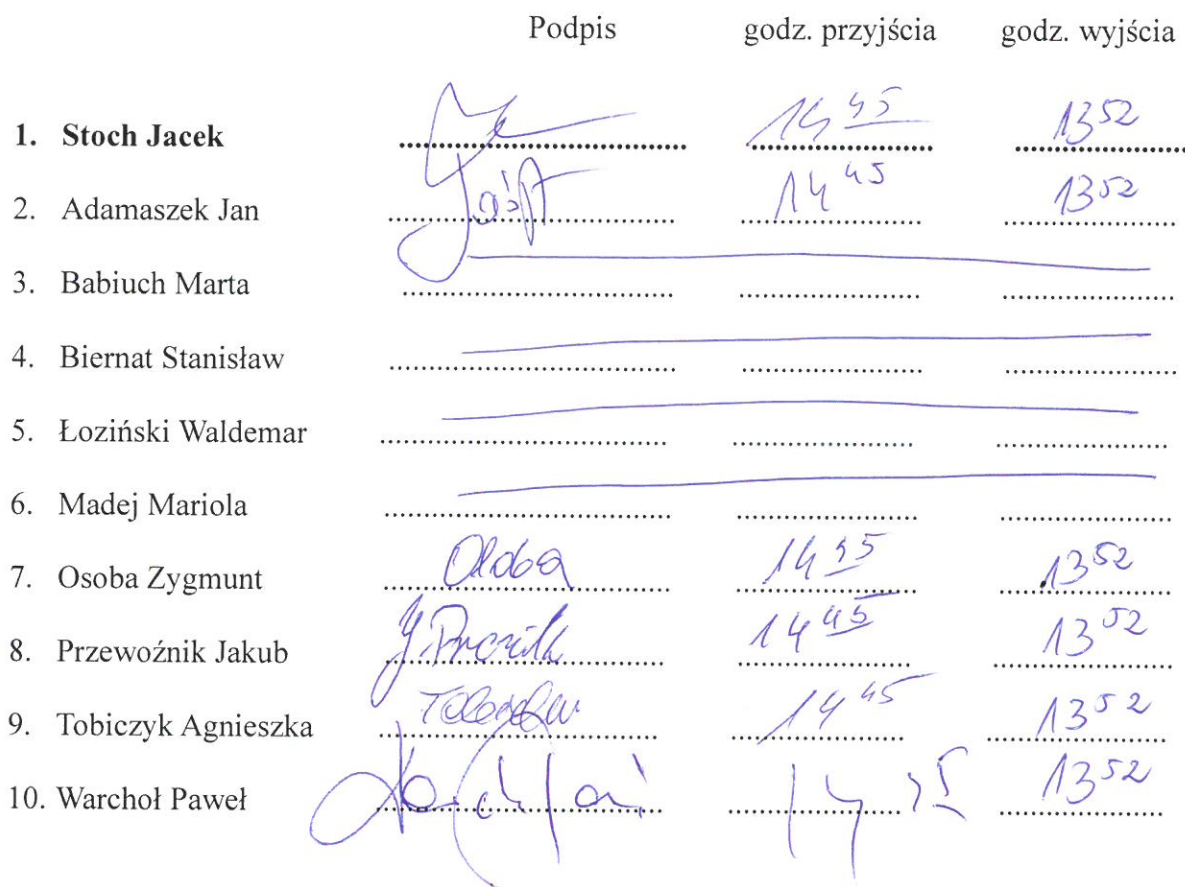 Podpis godz. przyjścia godz. wyjścia
1. Stoch Jacek 14 45 13 52
2. Adamaszek Jan 14 45 13 52
3. Babiuch Marta
4. Biernat Stanisław
5. Łoziński Waldemar
6. Madej Mariola
7. Osoba Zygmunt 14 45 13 52
8. Przewoźnik Jakub 14 45 13 52
9. Tobiczyk Agnieszka 14 45 13 52
10. Warchoł Paweł 14 45 13 52